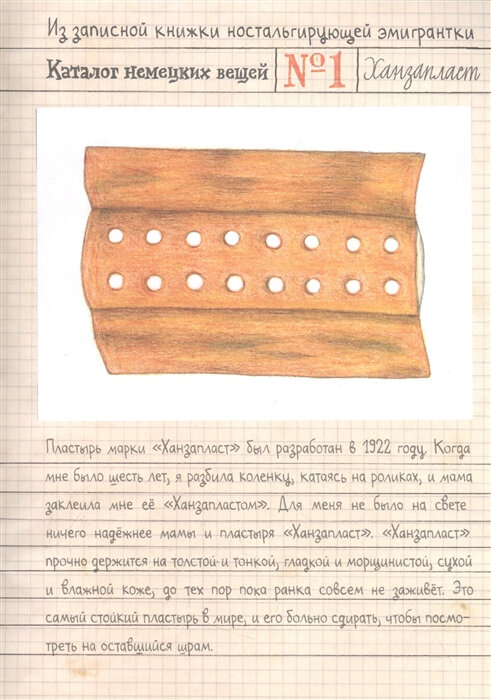 Из записной книжки ностальгирующей эмигрантки
Каталог немецких вещей №1 Ханзапласт
Пластырь марки «Ханзапласт» был разработан в 1922 году. Когда
мне было шесть лет, я разбила коленку, катаясь на роликах, и мама
заклеила мне её «Ханзапластом». Для меня не было на свете
ничего надёжнее мамы и пластыря «Ханзапласт». «Ханзапласт»
прочно держится на толстой и тонкой, гладкой и морщинистой, сухой
и влажной коже, до тех пор пока ранка совсем не заживёт. Это
самый стойкий пластырь в мире, и его больно сдирать, чтобы посмо-
треть на оставшийся шрам.